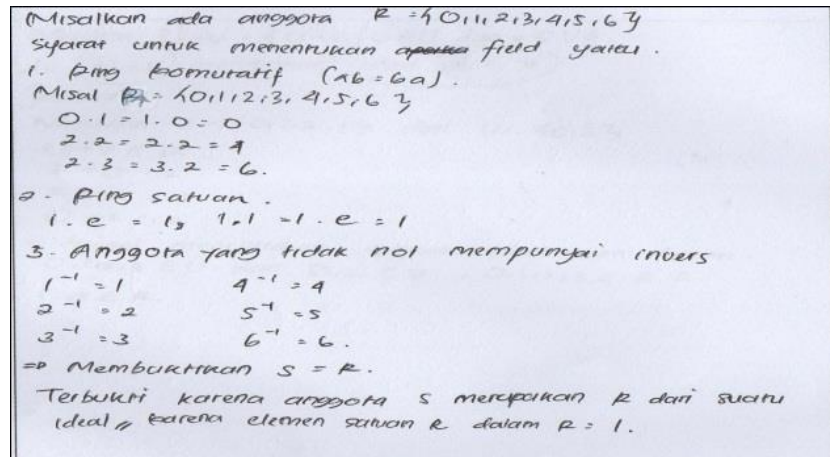 (Misalkan ada anggota R = {0,1,2,3,4,5,6}
syarat untuk menentukan field yaitu.
1. Ring komutatif (ab = ba).
Misal R = {0,1,2,3,4,5,6}
0.1 = 1.0 = 0
2.2 = 2.2 = 4
2.3 = 3.2 = 6.
2. Ring satuan.
1. e = 1, 1.1 = 1. e = 1
3. Anggota yang tidak nol mempunyai invers
1⁻¹ = 1 4⁻¹ = 4
2⁻¹ = 2 5⁻¹ = 5
3⁻¹ = 3 6⁻¹ = 6.
⇒ Membuktikan S = R.
Terbukti karena anggota S merupakan R dari suatu
ideal, karena elemen satuan R dalam R = 1.